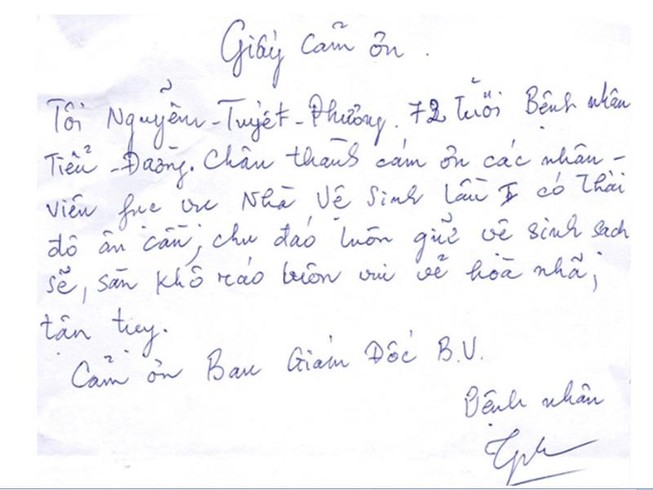 Giấy cảm ơn.
Tôi Nguyễn-Tuyết-Phương. 72 tuổi Bệnh nhân
Tiểu-Đường. Chân thành cám ơn các nhân-
viên fục vu Nhà Vệ Sinh lầu I có thái
độ ân cần, chu đáo luôn giữ vê sinh sach
sẽ, sàn khô ráo luôn vui vẽ hoà nhã,
tận tuy.
Cảm ơn Ban Giám Đốc B.V.
Bệnh nhân